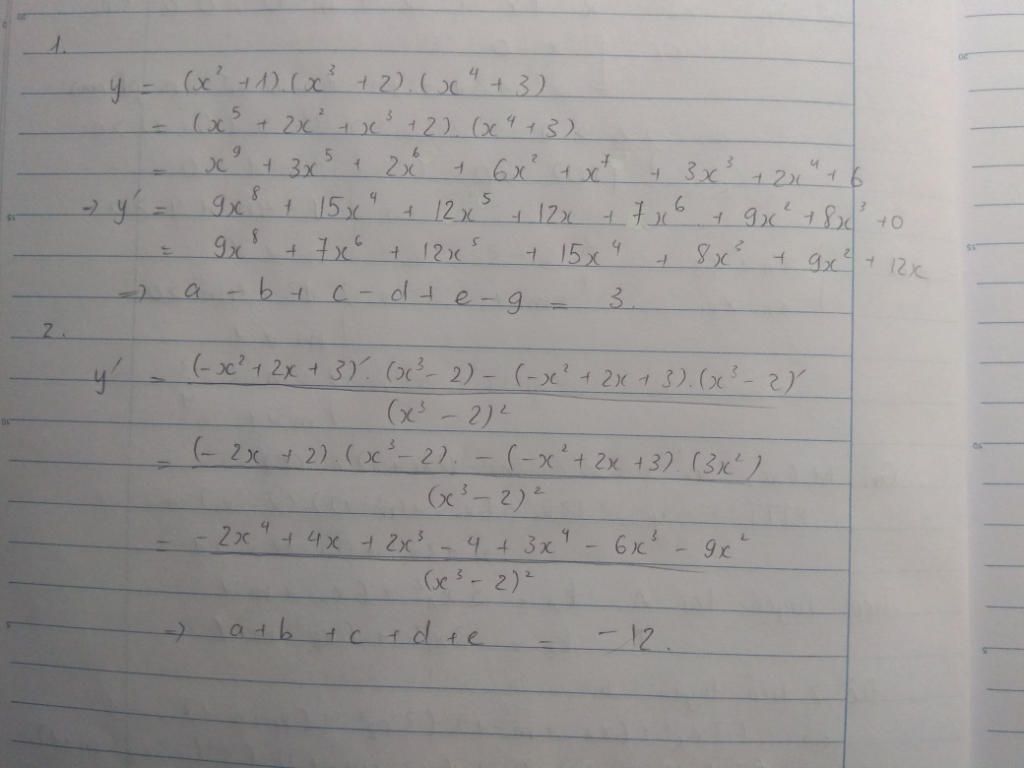 1.
y = (x² + 1).(x³ + 2).(x⁴ + 3)
= (x⁵ + 2x² + x³ + 2).(x⁴ + 3)
= x⁹ + 3x⁵ + 2x⁶ + 6x² + x⁷ + 3x³ + 2x⁴ + 6
⇒ y' = 9x⁸ + 15x⁴ + 12x⁵ + 12x + 7x⁶ + 9x² + 8x³ + 0
= 9x⁸ + 7x⁶ + 12x⁵ + 15x⁴ + 8x³ + 9x² + 12x
⇒ a - b + c - d + e - g = 3.
2.
y' = (-x² + 2x + 3)'.(x³ - 2) - (-x² + 2x + 3).(x³ - 2)'
(x³ - 2)²
= (-2x + 2).(x³ - 2). - (-x² + 2x + 3).(3x²)
(x³ - 2)²
= -2x⁴ + 4x + 2x³ - 4 + 3x⁴ - 6x³ - 9x²
(x³ - 2)²
⇒ a + b + c + d + e = -12.